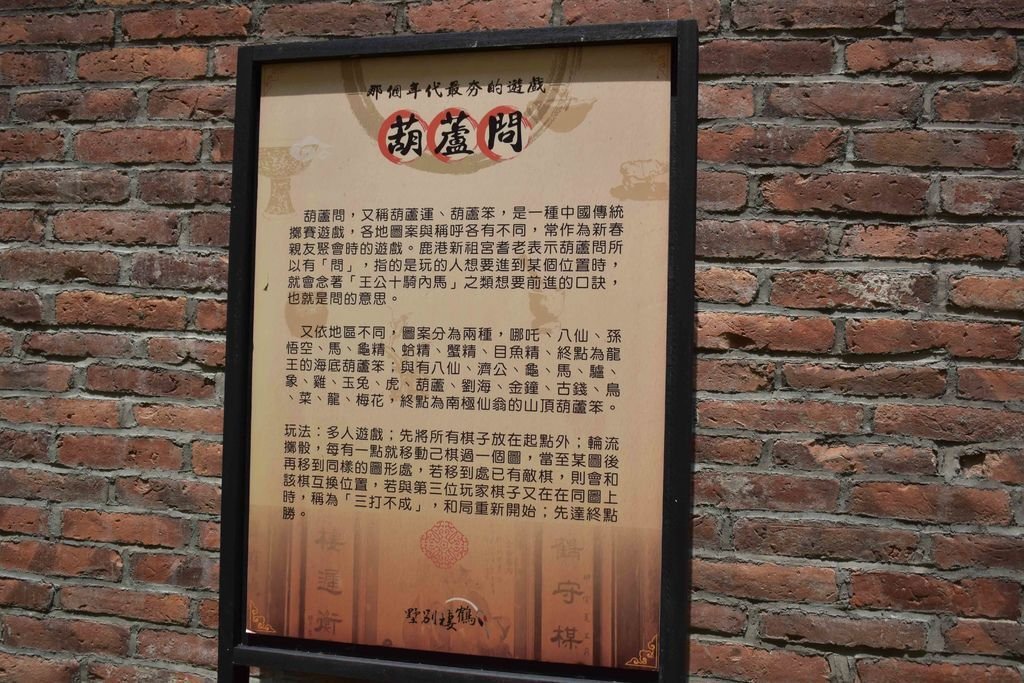 那個年代最夯的遊戲
葫蘆問
葫蘆問，又稱葫蘆運、葫蘆笨，是一種中國傳統
擲賽遊戲，各地圖案與稱呼各有不同，常作為新春
親友聚會時的遊戲。鹿港新祖宮耆老表示葫蘆問所
以有「問」，指的是玩的人想要進到某個位置時，
就會念著「王公十騎內馬」之類想要前進的口訣，
也就是問的意思。
又依地區不同，圖案分為兩種，哪吒、八仙、孫
悟空、馬、龜精、蛤精、蟹精、目魚精、終點為龍
王的海底葫蘆笨；與有八仙、濟公、龜、馬、驢、
象、雞、玉兔、虎、葫蘆、劉海、金鐘、古錢、鳥
、菜、龍、梅花，終點為南極仙翁的山頂葫蘆笨。
玩法：多人遊戲；先將所有棋子放在起點外；輪流
擲骰，每有一點就移動己棋過一個圖，當至某圖後
再移到同樣的圖形處，若移到處已有敵棋，則會和
該棋互換位置，若與第三位玩家棋子又在在同圖上
時，稱為「三打不成」，和局重新開始；先達終點
勝。
鶴守棋
墅別棲鶴